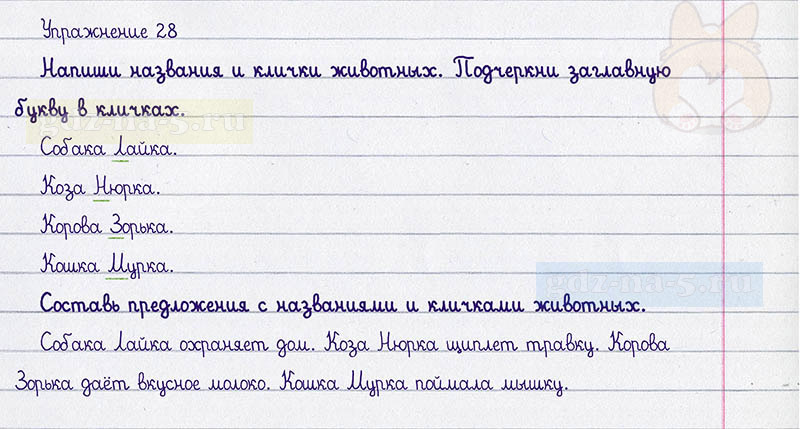 Упражнение 28
Напиши названия и клички животных. Подчеркни заглавную
букву в кличках.
gdz-na-5.ru
Собака Лайка.
Коза Нюрка.
Корова Зорька.
Кошка Мурка.
gdz-na-5.ru
Составь предложения с названиями и кличками животных.
Собака Лайка охраняет дом. Коза Нюрка щиплет травку. Корова
Зорька даёт вкусное молоко. Кошка Мурка поймала мышку.